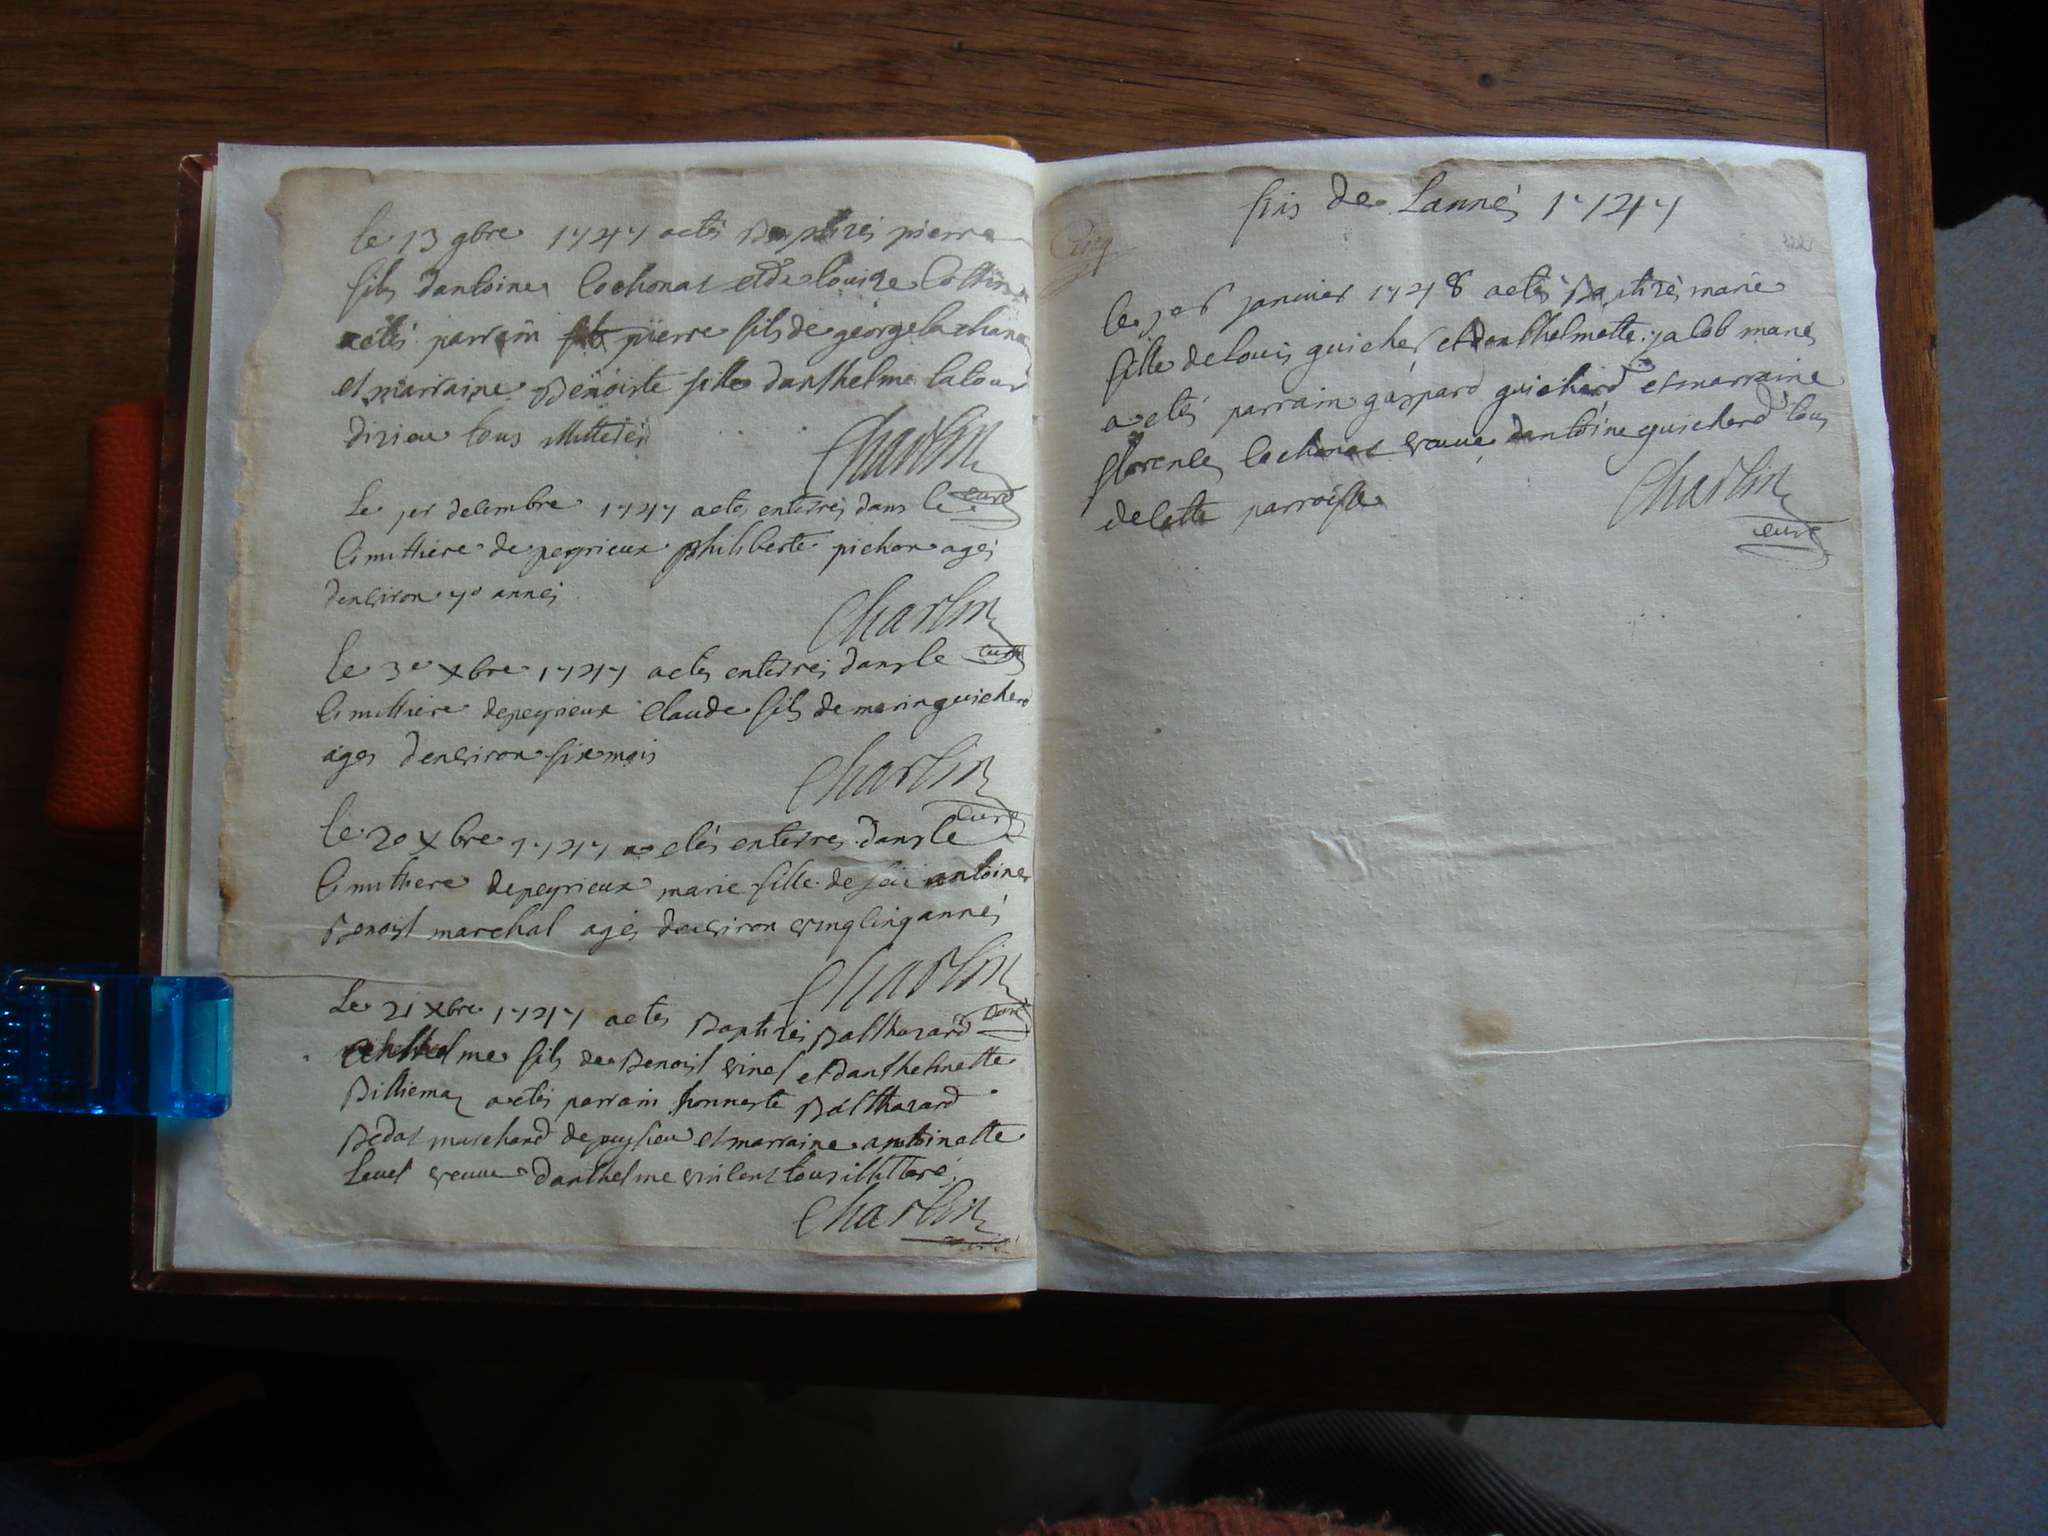 le 13 9bre 1747 a etés Baptizés pierre
fils dantoine Cochonat et de louize
a etés parrain pierre fils de george
et marraine Benoiste fille danthelme latour
dizieu tous illitterés
Charlin
curé
Le 1er decembre 1747 a etes enterrés dans le
Cimittiere de peyrieux philiberte pichon agés
denviron 70 annés
Charlin
curé
le 3e Xbre 1747 a etes enterrés dans le
Cimittiere de peyrieux Claude fils de marin guicherd
ages denviron six mois
Charlin
curé
le 20 Xbre 1747 a etés enterres dans le
Cimittiere de peyrieux marie fille de feu antoine
Benoist marchal agés denviron vingt cinq annés
Charlin
curé
Le 21 Xbre 1747 a etes Baptizés Balthazard
Anthelme fils de Benoist vinet et danthelmette
Billiemaz a etés parrain honneste Balthazard
Bedat marchand de et marraine antoinette
veuve danthelme vincent tous illitteré
Charlin
curé
fin de Lannés 1747
le 1er janvier 1748 a etés Baptizés marie
fille de louis guicherd et danthelmette jacob mariés
a etés parrain gaspard guicherd et marraine
florence Cochonat veuve dantoine guicherd tous
de cette parroisse
Charlin
curé